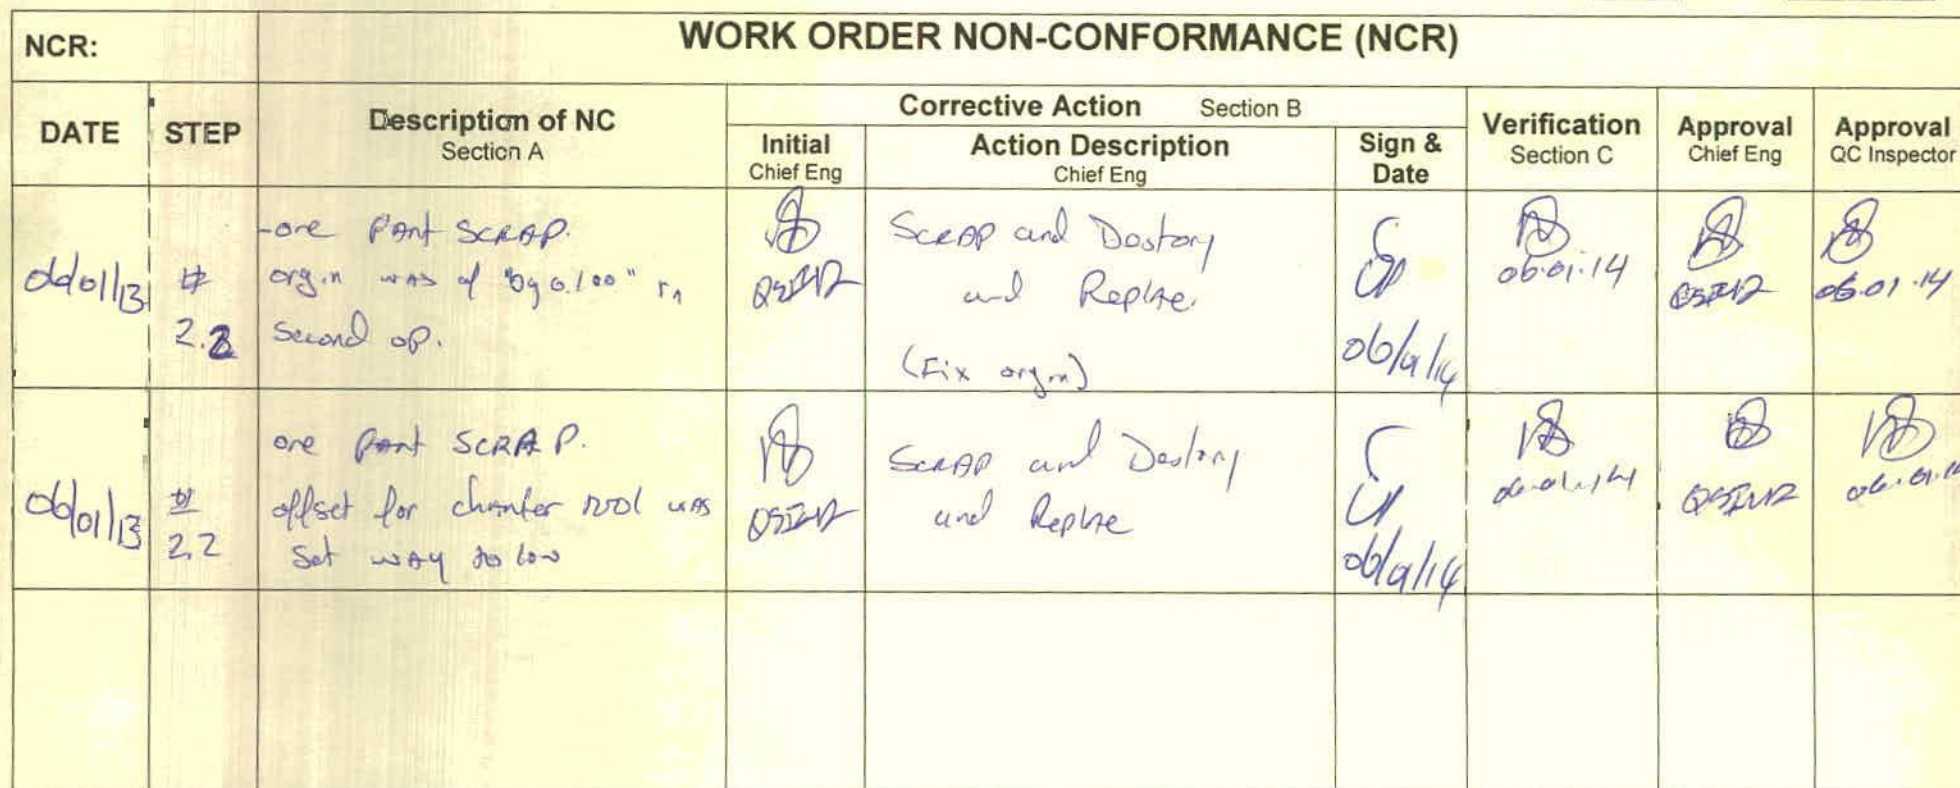 NCR:
WORK ORDER NON-CONFORMANCE (NCR)
DATE
STEP
Description of NC
Section A
Corrective Action Section B
Initial
Chief Eng
Action Description
Chief Eng
Sign &
Date
Verification
Section C
Approval
Chief Eng
Approval
QC Inspector
06/01/13
#
2.2
-one Part SCRAP.
orgin was of "by 0.100" in
Second op.
Scrap and Destory
and Replace
(Fix orgin)
06/01/14
06.01.14
06.01.14
06/01/13
#
2.2
one Part SCRAP.
offset for chamfer tool was
Set way to low
Scrap and Destory
and Replace
06/01/14
06.01.14
06.01.14